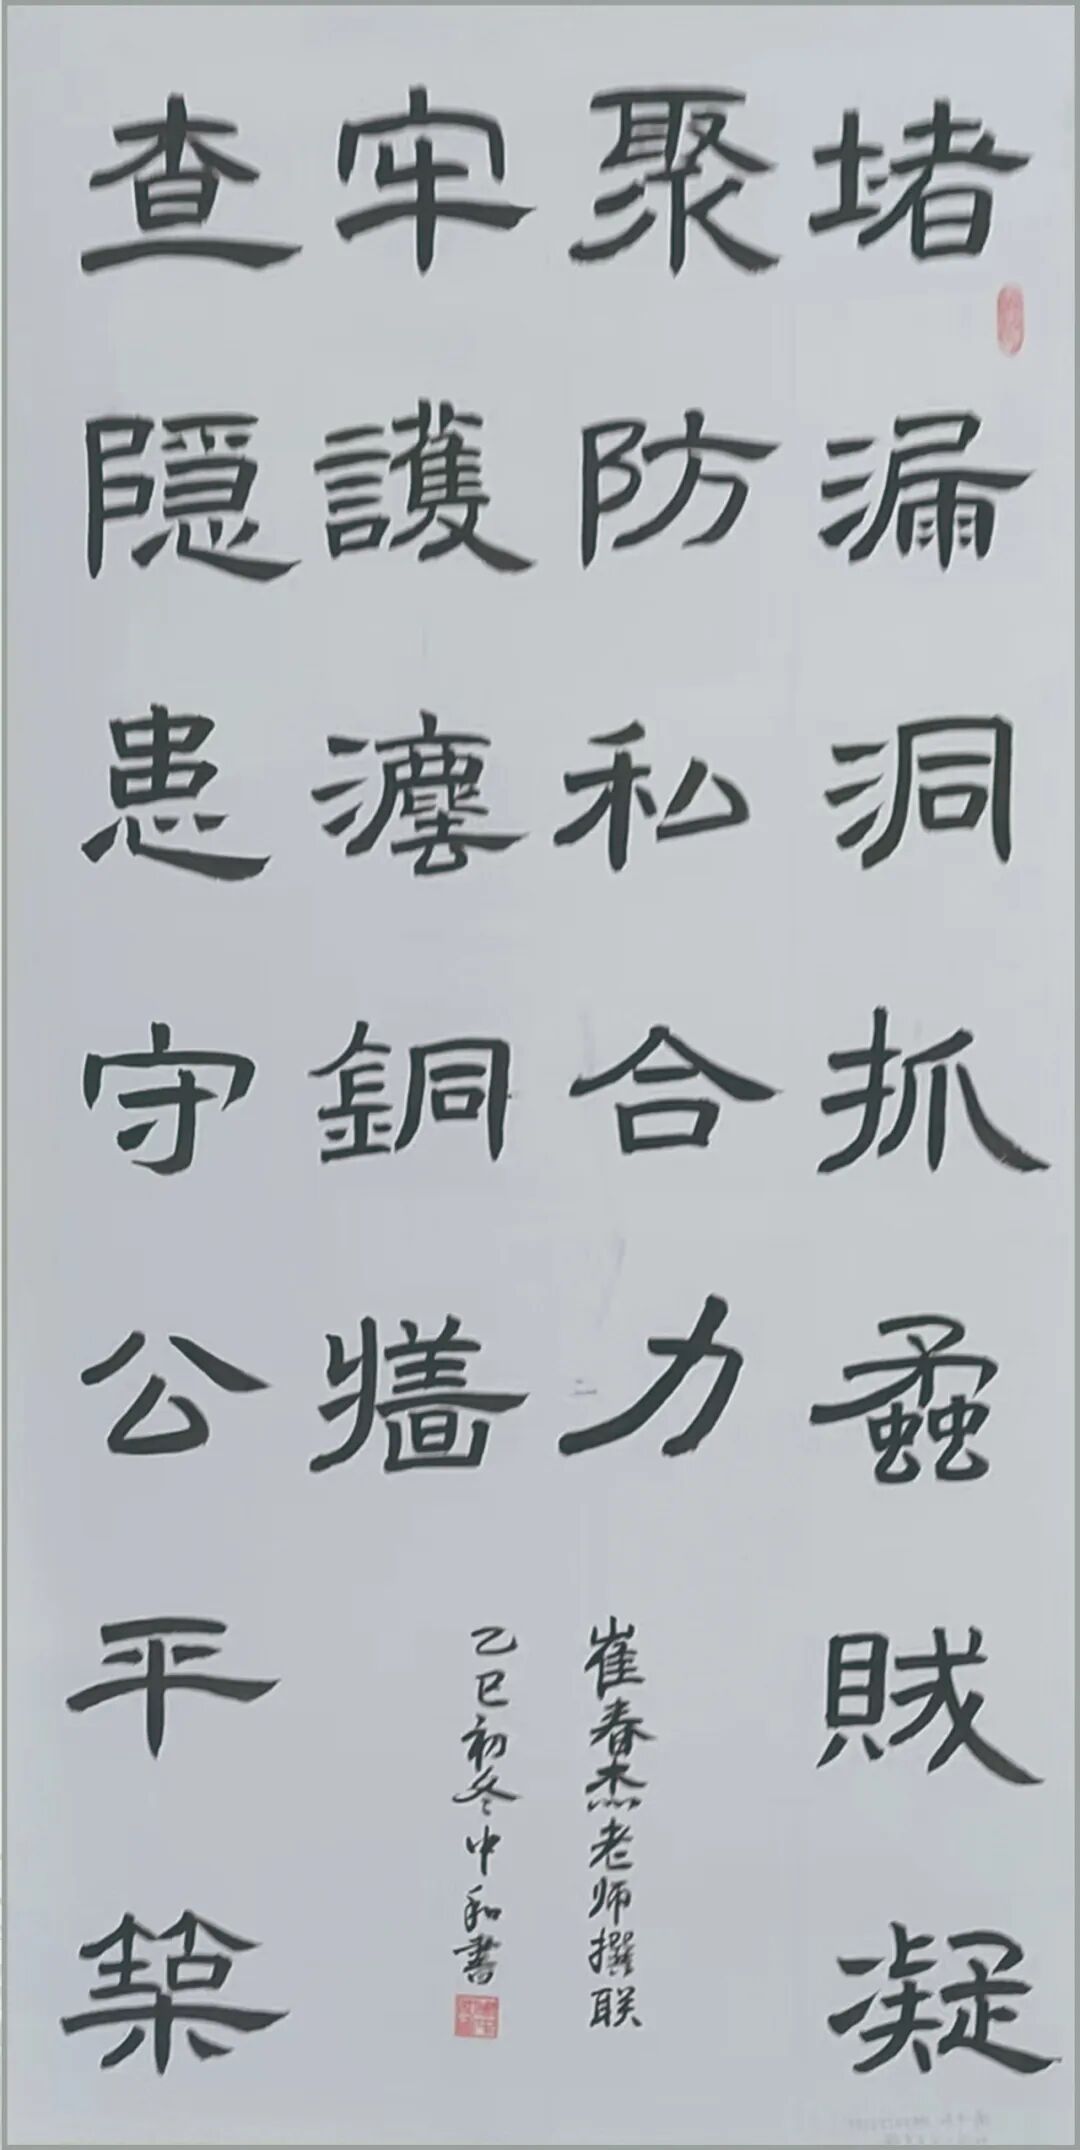 堵漏洞抓蟊賊凝
聚防私合力
查隱患守公平築
牢護灋銅牆
崔春杰老师撰联
乙巳初冬中和書